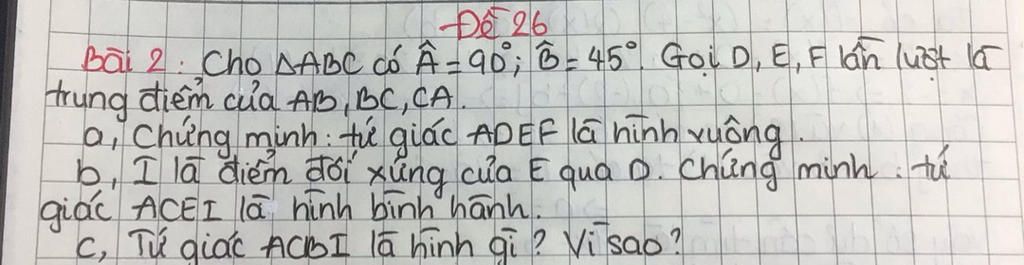 Đề 26
Bài 2: Cho ΔABC có Â = 90°; B̂ = 45°. Gọi D, E, F lần lượt là
trung điểm của AB, BC, CA.
a, Chứng minh: tứ giác ADEF là hình vuông.
b, I là điểm đối xứng của E qua D. Chứng minh: tứ
giác ACEI là hình bình hành.
c, Tứ giác ACBI là hình gì? Vì sao?